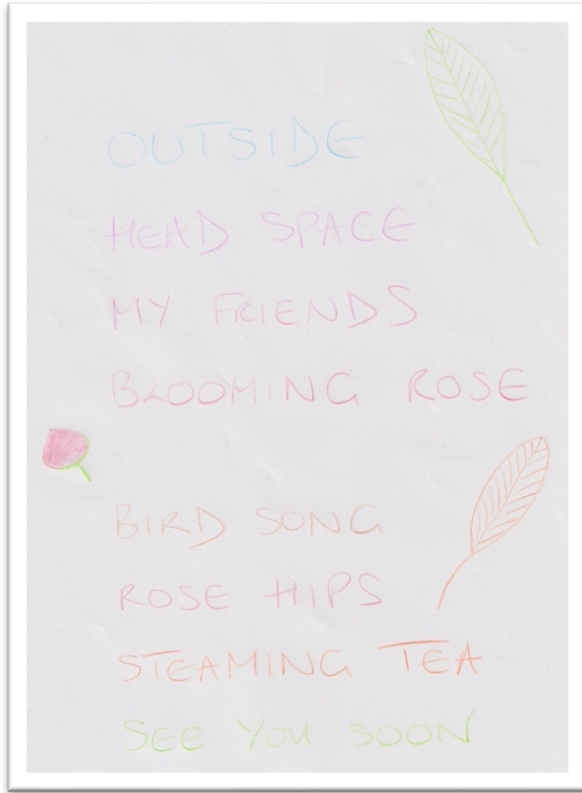 OUTSIDE
HEAD SPACE
MY FRIENDS
BLOOMING ROSE
BIRD SONG
ROSE HIPS
STEAMING TEA
SEE YOU SOON